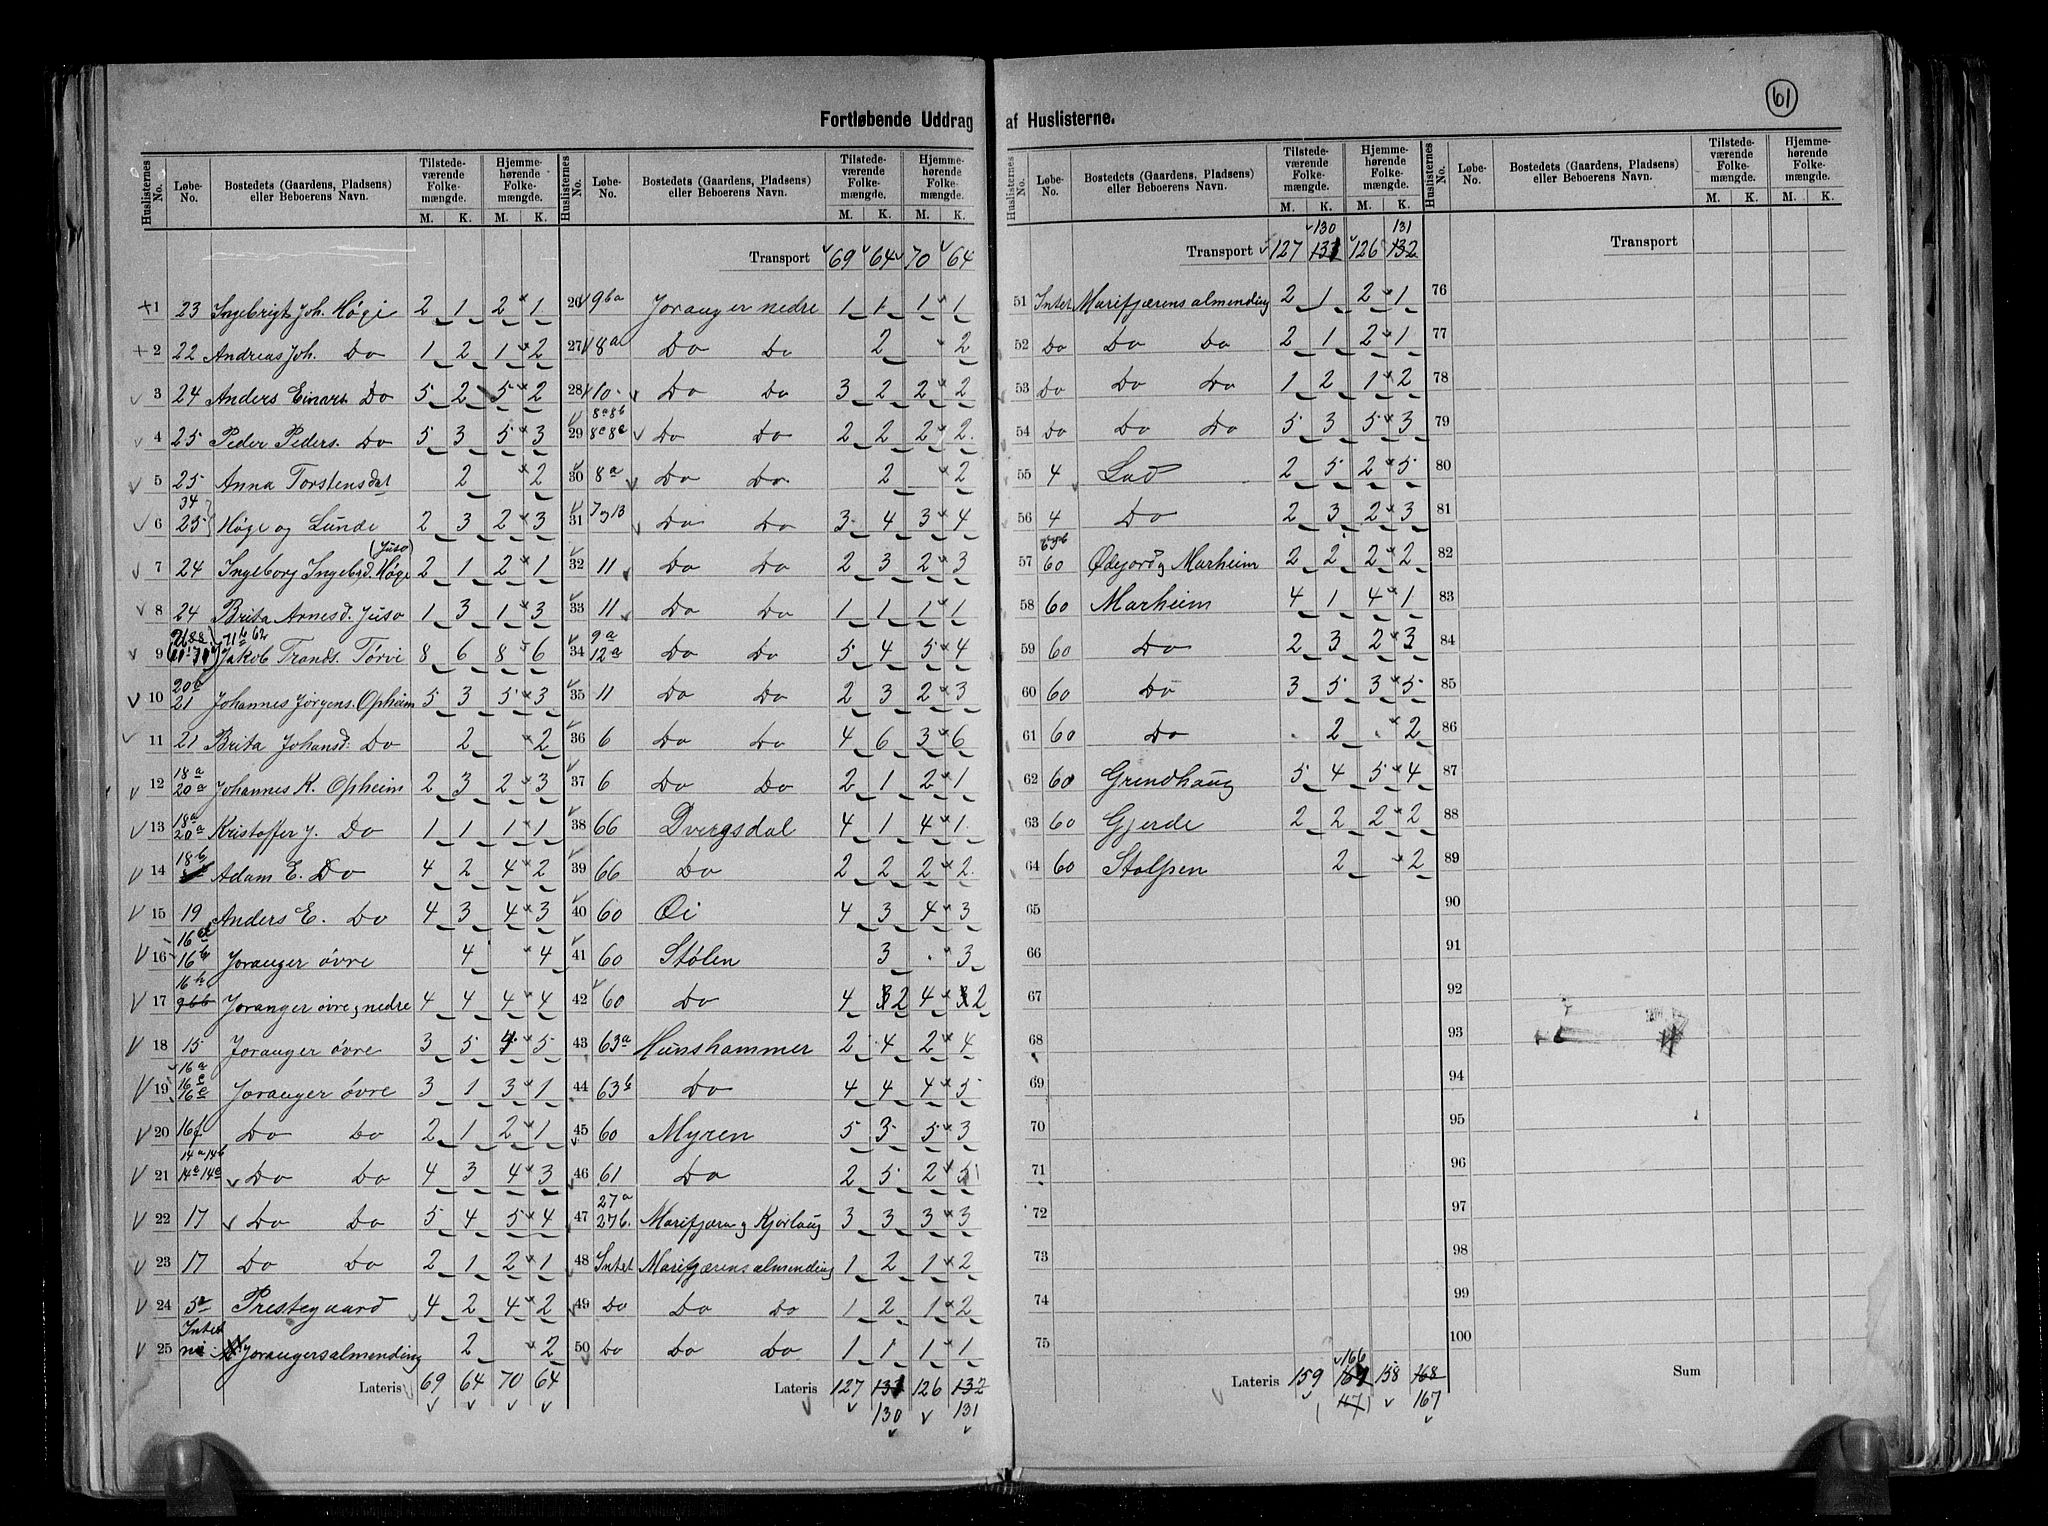 61
Fortløbende Uddrag af Huslisterne.
Huslisternes No. | Løbe-No. | Bostedets (Gaardens, Pladsens) eller Beboerens Navn. | Tilstedeværende Folkemængde. M. K. | Hjemmehørende Folkemængde. M. K.
1 | 23 | Ingebrigt Joh. Høgi | 2 | 1 | 2 | 1
2 | 22 | Andreas Joh. Do | 1 | 2 | 1 | 2
3 | 24 | Anders Einars Do | 5 | 2 | 5 | 2
4 | 25 | Peder Peders. Do | 5 | 3 | 5 | 3
5 | 25 | Anna Torstensdat | | 2 | | 2
6 | 34 25 | Høge og Lunde | 2 | 3 | 2 | 3
7 | 24 | Ingeborg Ingebrd. Høgi (Juso) | 2 | 1 | 2 | 1
8 | 24 | Brita Arnesd. Juso | 1 | 3 | 1 | 3
9 | 71b 62 | Jakob Trands. Tørvi | 8 | 6 | 8 | 6
10 | 20a 21 | Johannes Jørgens. Opheim | 5 | 3 | 5 | 3
11 | 21 | Brita Johansd. Do | | 2 | | 2
12 | 18a 20a | Johannes K. Opheim | 2 | 3 | 2 | 3
13 | 18a 20a | Kristoffer J. Do | 1 | 1 | 1 | 1
14 | 18b | Adam E. Do | 4 | 2 | 4 | 2
15 | 19 | Anders E. Do | 4 | 3 | 4 | 3
16 | 16d 16b | Joranger øvre | | 4 | | 4
17 | 16h 966 | Joranger øvre og nedre | 4 | 4 | 4 | 4
18 | 15 | Joranger øvre | 3 | 5 | 4 | 5
19 | 16a 16c 16e | Joranger øvre | 3 | 1 | 3 | 1
20 | 16f | Do Do | 2 | 1 | 2 | 1
21 | 14a 14b 14a 14a | Do Do | 4 | 3 | 4 | 3
22 | 17 | Do Do | 5 | 4 | 5 | 4
23 | 17 | Do Do | 2 | 1 | 2 | 1
24 | 5a | Prestegaard | 4 | 2 | 4 | 2
25 | Intet | Jorangersalmending | | 2 | | 2
Lateris | 69 | 64 | 70 | 64
Huslisternes No. | Løbe-No. | Bostedets (Gaardens, Pladsens) eller Beboerens Navn. | Tilstedeværende Folkemængde. M. K. | Hjemmehørende Folkemængde. M. K.
Transport | 69 | 64 | 70 | 64
26 | 96a | Joranger nedre | 1 | 1 | 1 | 1
27 | 8a | Do Do | | 2 | | 2
28 | 10 | Do Do | 3 | 2 | 2 | 2
29 | 8a 8b 8c 8e | Do Do | 2 | 2 | 2 | 2
30 | 8a | Do Do | | 2 | | 2
31 | 7 og 13 | Do Do | 3 | 4 | 3 | 4
32 | 11 | Do Do | 2 | 3 | 2 | 3
33 | 11 | Do Do | 1 | 1 | 1 | 1
34 | 9a 12a | Do Do | 5 | 4 | 5 | 4
35 | 11 | Do Do | 2 | 3 | 2 | 3
36 | 6 | Do Do | 4 | 6 | 3 | 6
37 | 6 | Do Do | 2 | 1 | 2 | 1
38 | 66 | Dvergsdal | 4 | 1 | 4 | 1
39 | 66 | Do | 2 | 2 | 2 | 2
40 | 60 | Øi | 4 | 3 | 4 | 3
41 | 60 | Stølen | | 3 | | 3
42 | 60 | Do | 4 | 3 2 | 4 | 3 2
43 | 63a | Hunshammer | 2 | 4 | 2 | 4
44 | 63b | Do | 4 | 4 | 4 | 5
45 | 60 | Myren | 5 | 3 | 5 | 3
46 | 61 | Do | 2 | 5 | 2 | 5
47 | 27a 27b. | Marifjæra og Kjørlaug | 3 | 3 | 3 | 3
48 | Intet | Marifjærens almending | 1 | 2 | 1 | 2
49 | Do | Do Do | 1 | 2 | 1 | 2
50 | Do | Do Do | 1 | 1 | 1 | 1
Lateris | 127 | 131 | 126 | 132
130 | 131
Huslisternes No. | Løbe-No. | Bostedets (Gaardens, Pladsens) eller Beboerens Navn. | Tilstedeværende Folkemængde. M. K. | Hjemmehørende Folkemængde. M. K.
130 | 131
Transport | 127 | 131 | 126 | 132
51 | Intet | Marifjærens almending | 2 | 1 | 2 | 1
52 | Do | Do Do | 2 | 1 | 2 | 1
53 | Do | Do Do | 1 | 2 | 1 | 2
54 | Do | Do Do | 5 | 3 | 5 | 3
55 | 4 | Lad | 2 | 5 | 2 | 5
56 | 4 | Do | 2 | 3 | 2 | 3
57 | 60 | Ødejord og Marheim | 2 | 2 | 2 | 2
58 | 60 | Marheim | 4 | 1 | 4 | 1
59 | 60 | Do | 2 | 3 | 2 | 3
60 | 60 | Do | 3 | 5 | 3 | 5
61 | 60 | Do | | 2 | | 2
62 | 60 | Grindhaug | 5 | 4 | 5 | 4
63 | 60 | Gjerde | 2 | 2 | 2 | 2
64 | 60 | Stolpen | | 2 | | 2
65
66
67
68
69
70
71
72
73
74
75
166
Lateris | 159 | 167 | 158 | 168
167
Huslisternes No. | Løbe-No. | Bostedets (Gaardens, Pladsens) eller Beboerens Navn. | Tilstedeværende Folkemængde. M. K. | Hjemmehørende Folkemængde. M. K.
Transport
76
77
78
79
80
81
82
83
84
85
86
87
88
89
90
91
92
93
94
95
96
97
98
99
100
Sum